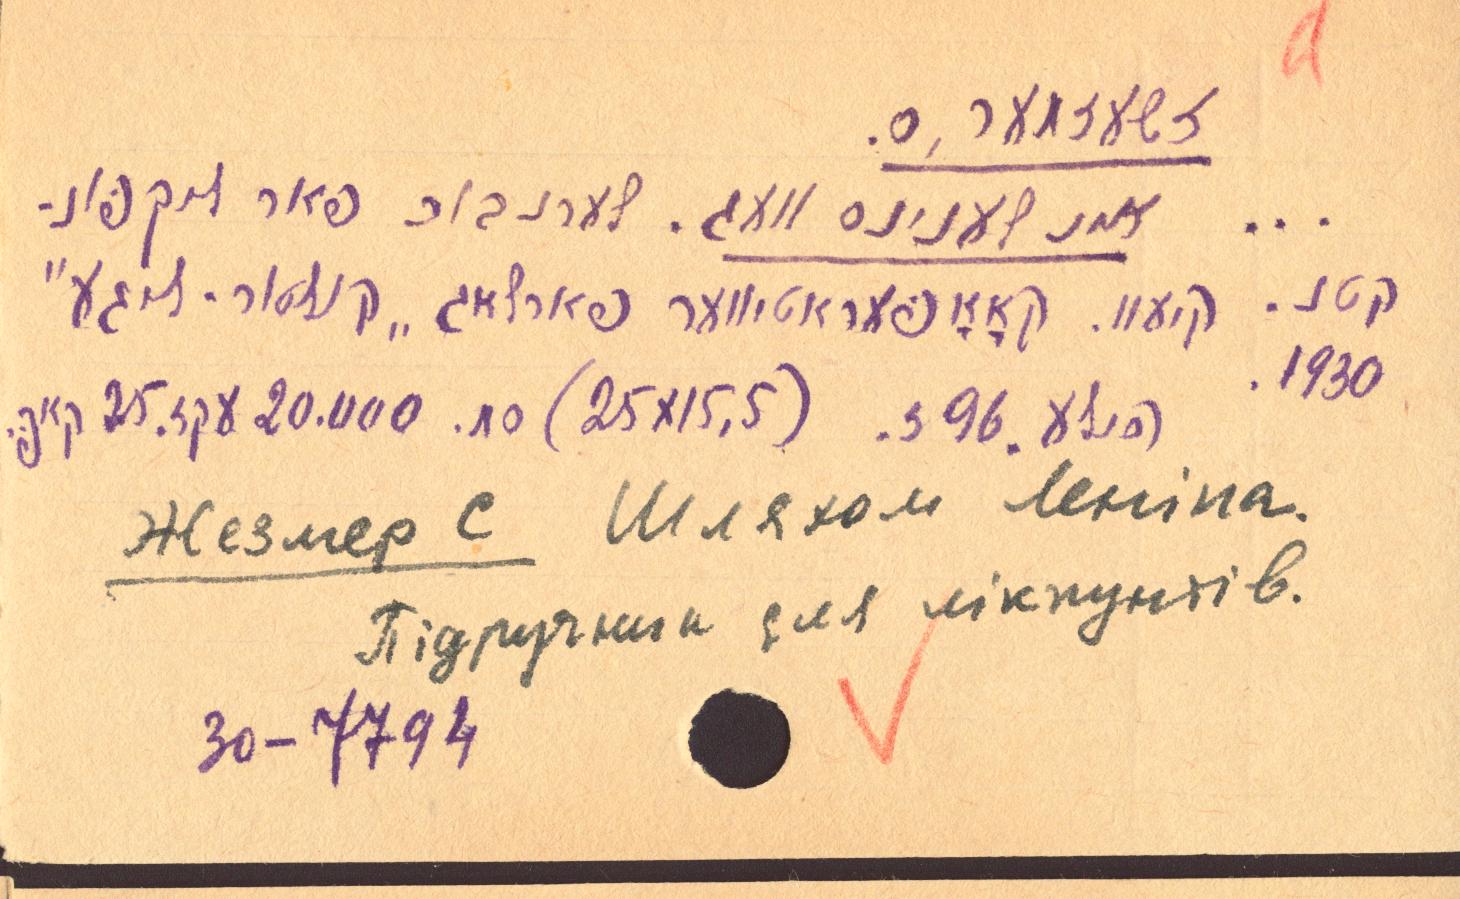 d
זשעזמער, ס.
... אפנ לענינס וועג. לערנבוכ פאר ליקפונ-
קטנ. קיעוו. קאָאָפּעראטיווער פארלאג „קולטור-ליגע"
1930.
הילע. 96 ז. (25x15,5) סמ. 20.000 עקז. 25 קאפּ.
Жезмер С Шляхом Леніна.
Підручник для лікпунктів.
30-7794